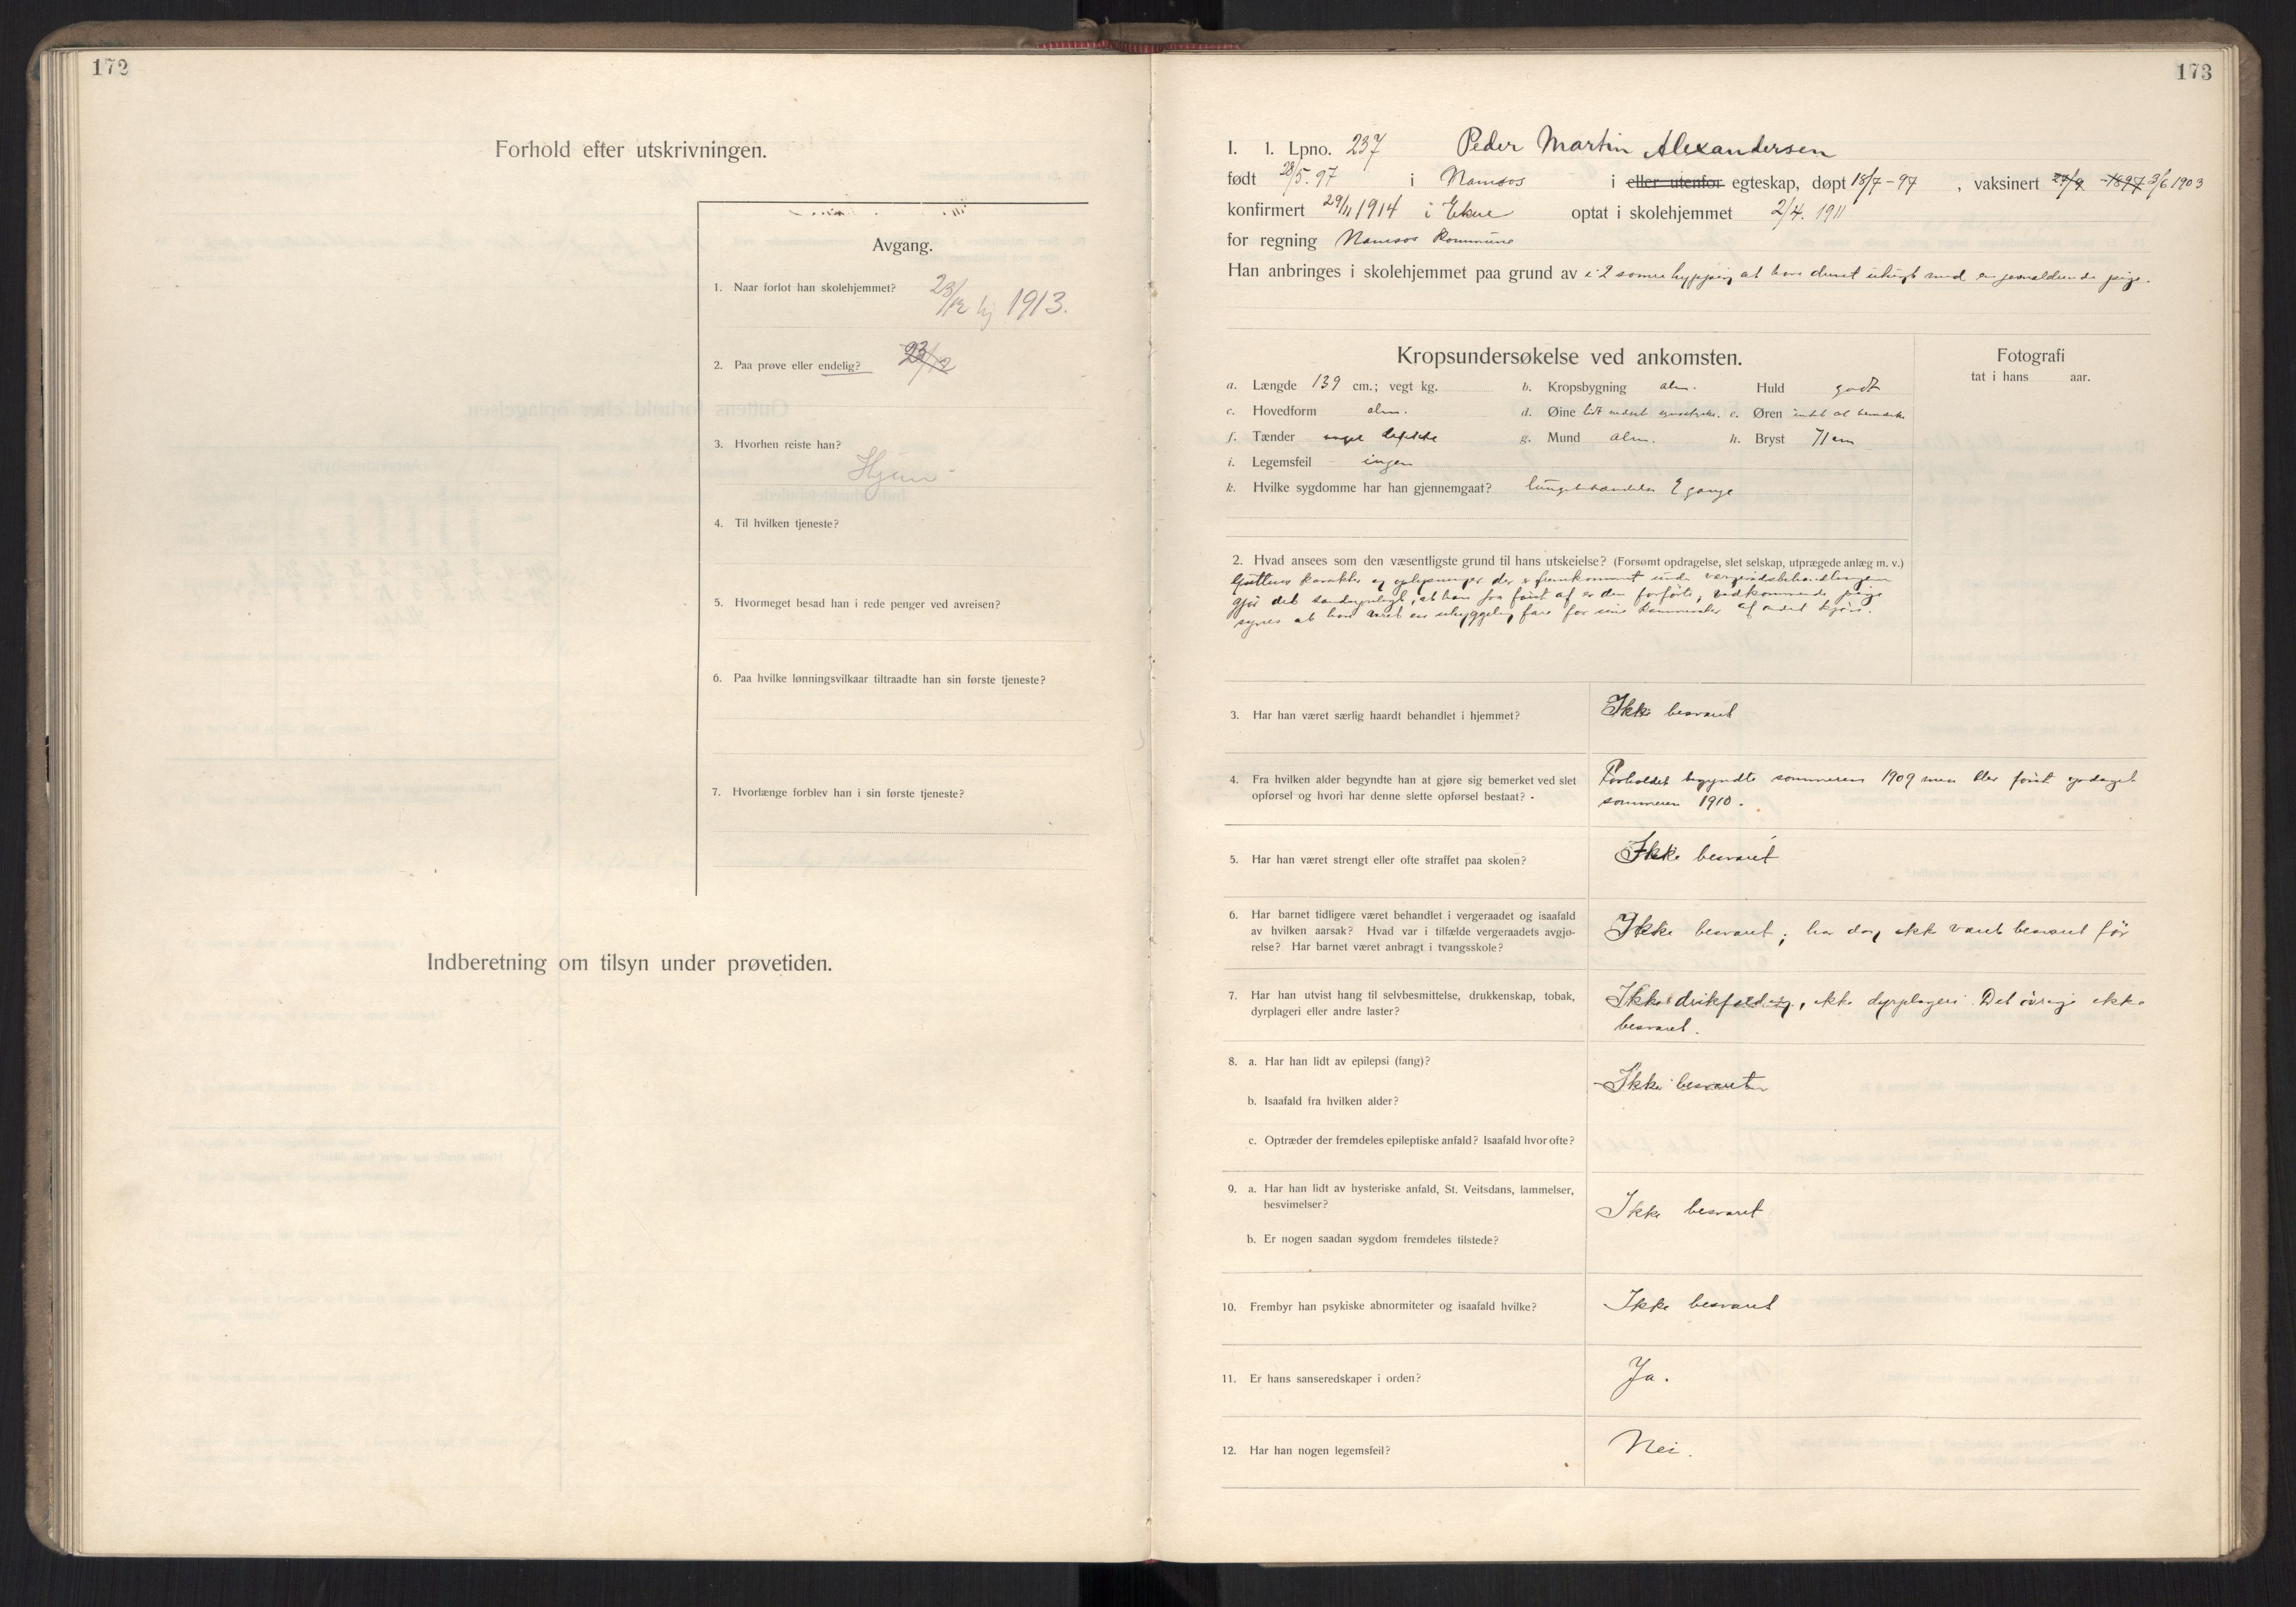 172
Forhold efter utskrivningen.
Avgang.
1. Naar forlot han skolehjemmet? 23/12 1913.
2. Paa prøve eller endelig? 23/12
3. Hvorhen reiste han?
Hjem
4. Til hvilken tjeneste?
5. Hvormeget besad han i rede penger ved avreisen?
6. Paa hvilke lønningsvilkaar tiltraadte han sin første tjeneste?
7. Hvorlænge forblev han i sin første tjeneste?
Indberetning om tilsyn under prøvetiden.
173
I. 1. Lpno. 237 Peder Martin Alexandersen
født 28/5. 97 i Namsos i eller utenfor egteskap, døpt 18/7 - 97, vaksinert 27/9 -1897 3/6 1903
konfirmert 29/11 1914 i Ekne optat i skolehjemmet 2/4. 1911
for regning Namsos Kommune
Han anbringes i skolehjemmet paa grund av i 2 somre hyppig at have drevet utugt med en jevnaldrende pige.
Kropsundersøkelse ved ankomsten.
Fotografi
tat i hans aar.
a. Længde 139 cm.; vegt kg. b. Kropsbygning alm. Huld godt
c. Hovedform alm. d. Øine lidt nedsat synsstyrke. e. Øren intet at bemærke
f. Tænder nogle defekte g. Mund alm. h. Bryst 71 cm
i. Legemsfeil ingen
k. Hvilke sygdomme har han gjennemgaat? lungebetændelse 2 gange
2. Hvad ansees som den væsentligste grund til hans utskeielse? (Forsømt opdragelse, slet selskap, utprægede anlæg m. v.)
Guttens karakter og oplysninger der er fremkommet under vergeraadsbehandlingen
gjør det sandsynligt, at han fra først af er den forførte, vedkommende pige
synes at have været en uhyggelig fare for sine kammerater af andet kjøn.
3. Har han været særlig haardt behandlet i hjemmet? Ikke besvaret
4. Fra hvilken alder begyndte han at gjøre sig bemerket ved slet opførsel og hvori har denne slette opførsel bestaat?
Forholdet begyndte sommeren 1909 men blev først opdaget
sommeren 1910.
5. Har han været strengt eller ofte straffet paa skolen? Ikke besvaret
6. Har barnet tidligere været behandlet i vergeraadet og isaafald
av hvilken aarsak? Hvad var i tilfælde vergeraadets avgjø-
relse? Har barnet været anbragt i tvangsskole?
Ikke besvaret; har dog ikke været besvaret før
7. Har han utvist hang til selvbesmittelse, drukkenskap, tobak,
dyrplageri eller andre laster?
Ikke drikfældig, ikke dyrplageri. Det øvrige ikke
besvaret.
8. a. Har han lidt av epilepsi (fang)?
Ikke besvaret
b. Isaafald fra hvilken alder?
c. Optræder der fremdeles epileptiske anfald? Isaafald hvor ofte?
9. a. Har han lidt av hysteriske anfald, St. Veitsdans, lammelser,
besvimelser?
Ikke besvaret
b. Er nogen saadan sygdom fremdeles tilstede?
10. Frembyr han psykiske abnormiteter og isaafald hvilke? Ikke besvaret
11. Er hans sanseredskaper i orden? Ja.
12. Har han nogen legemsfeil? Nei.